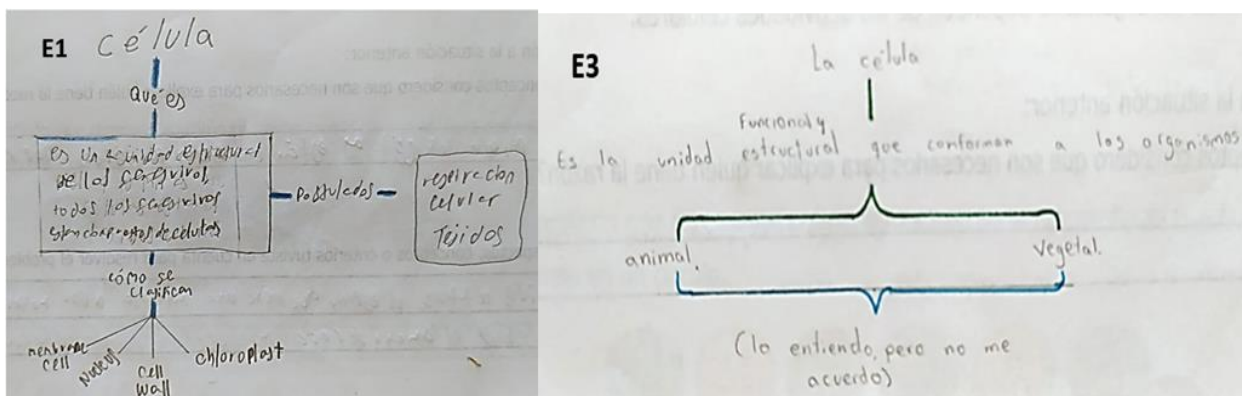 E1 célula
Qué es
es un a unidad estructural
de los seres vivos,
todos los seres vivos
estan compuestos de celulas
Postulados
respiracion
celular
Tejidos
cómo se
clasifican
menbrane
cell
Nucleus
cell
wall
chloroplast
E3
La célula
Es la unidad funcional y estructural que conforman a los organismos
animal.
vegetal.
(lo entiendo, pero no me
acuerdo)